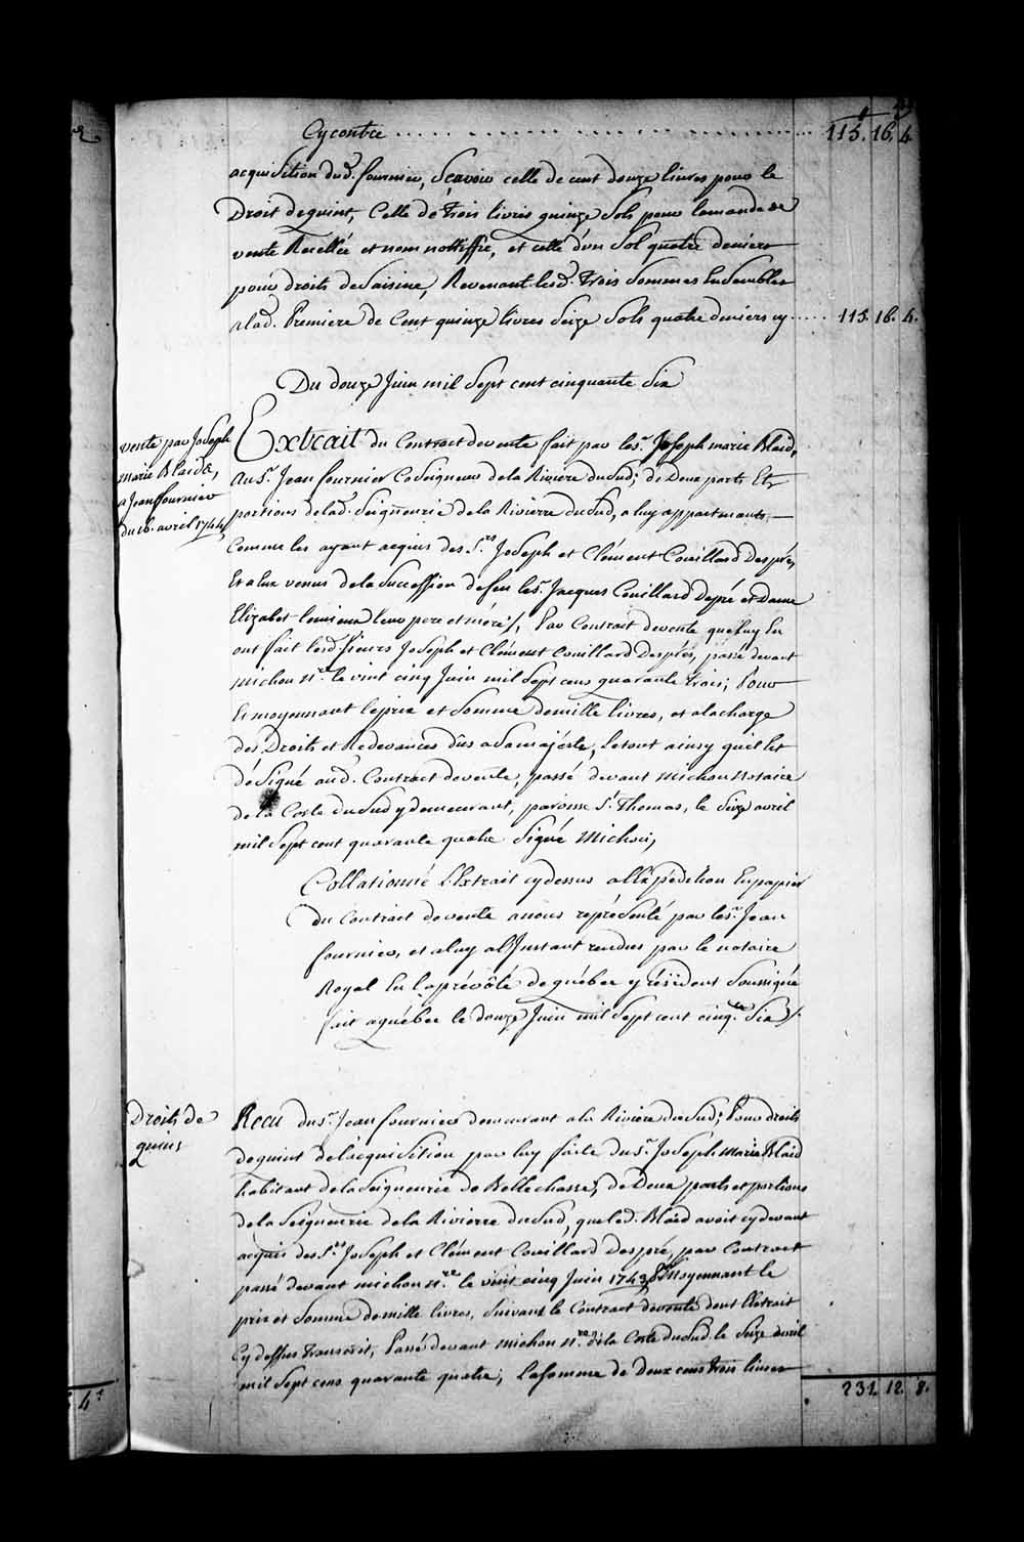 Cy contre . . . . . . . . . . . . . . . . . . 115. 16. 4
acquisition dud. fournier, Sçavoir celle de cent douze livres pour le
Droit de quint, Celle de trois livres quinze Sols pour lamande de
vente Recellée et non nottiffié, et celle d'un Sol quatre deniers
pour droits de Saisine, Revenant lesd. trois Sommes Ensembles
alad. Premiere de Cent quinze livres Seize Sols quatre deniers cy . . . . . 115. 16. 4.
Du douze Juin mil Sept cent cinquante Six
vente par Joseph
marie Blaid,
a Jean fournier
du 16. avril 1744
Extrait du Contract de vente fait par le s.r Joseph marie Blaid,
au S.r Jean fournier CoSeigneur de la Riviere du Sud; de Deux parts Et
portions de lad. Seigneurie de la Riviere du Sud, a luy appartenants,
Comme les ayant acquis des S.rs Joseph et Clément Couillard Després,
Et a Eux venus de la Succession de feu le s.r Jacques Couillard Depré et Dame
Elizabet lemieux leur pere et mére /, Par Contrait de vente que luy En
ont fait lesd. sieurs Joseph et Clément Couillard Després, passé devant
michon n.re le vint cinq Juin mil Sept cens quarante trois; Pour
Et moyennant le prix et Somme de mille livres, et ala charge
des Droits et Redevances dûs a Sa majésté, le tout ainsy quil Est
déSigné aud. Contract de vente, passé devant michon notaire
de la Coste du Sud y demeurant, paroisse S.t Thomas, le Sieze avril
mil Sept cent quarante quatre. Signé Michon,
Collationné L'Extrait cy dessus a l'Expédition En papier
du Contract de vente a nous représenté par le s.r Jean
fournier, et a luy a l'Instant rendus par le notaire
Royal En la prévôté de québec y résident Soussigné
fait a québec le douze Juin mil Sept cent cinq.te Six /.
Droits de
quint
Recu du s.r Jean fournier demeurant a la Riviere du Sud; Pour droits
de quint de l'acquiSition par luy faite du s.r Joseph marie Blaid
habitant de la Seigneurie de Bellechasse, de Deux parts et portions
de la Seigneurie de la Riviere du Sud, que led. Blaid avoit cy devant
acquis des S.rs Joseph et Clément Couillard Despré, par Contract
passé devant michon n.re le vint cinq Juin 1743 Et Moyennant le
prix et Somme de mille livres, Suivant le Contract de vente dont l'Extrait
Cy dessus transcrit, Passé devant michon n.re de la Coste du Sud le Seize avril
mil Sept cens quarante quatre; La Somme de Deux cens trois livres
231. 12. 8.